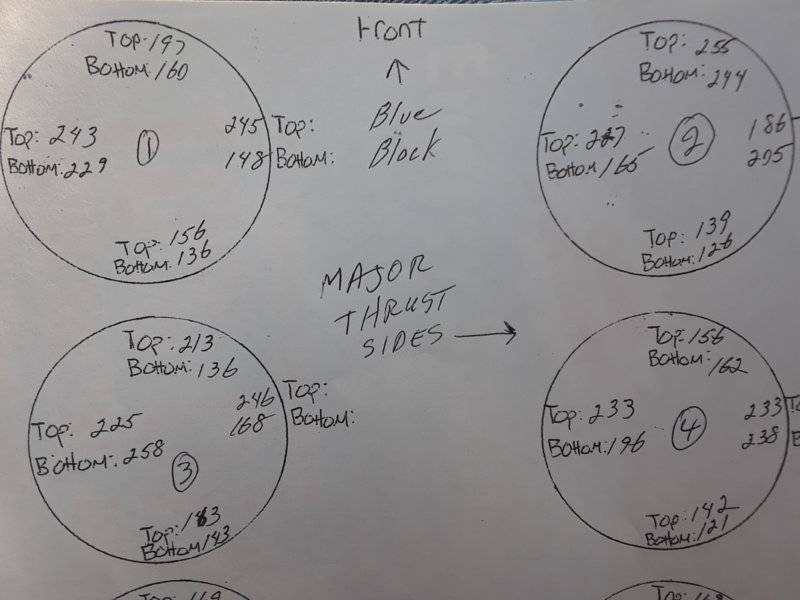 Front
Blue
Block
MAJOR
THRUST
SIDES
Top: 197
Bottom: 160
Top: 243
Bottom: 229
1
245 Top:
148 Bottom:
Top: 156
Bottom: 136
Top: 255
Bottom: 244
Top:
Bottom: 165
2
186
205
Top: 139
Bottom: 126
Top: 213
Bottom: 136
Top: 225
Bottom: 258
3
246 Top:
168 Bottom:
Top:
Bottom 143
Top: 156
Bottom: 162
Top: 233
Bottom: 196
4
233
238
Top: 142
Bottom: 121